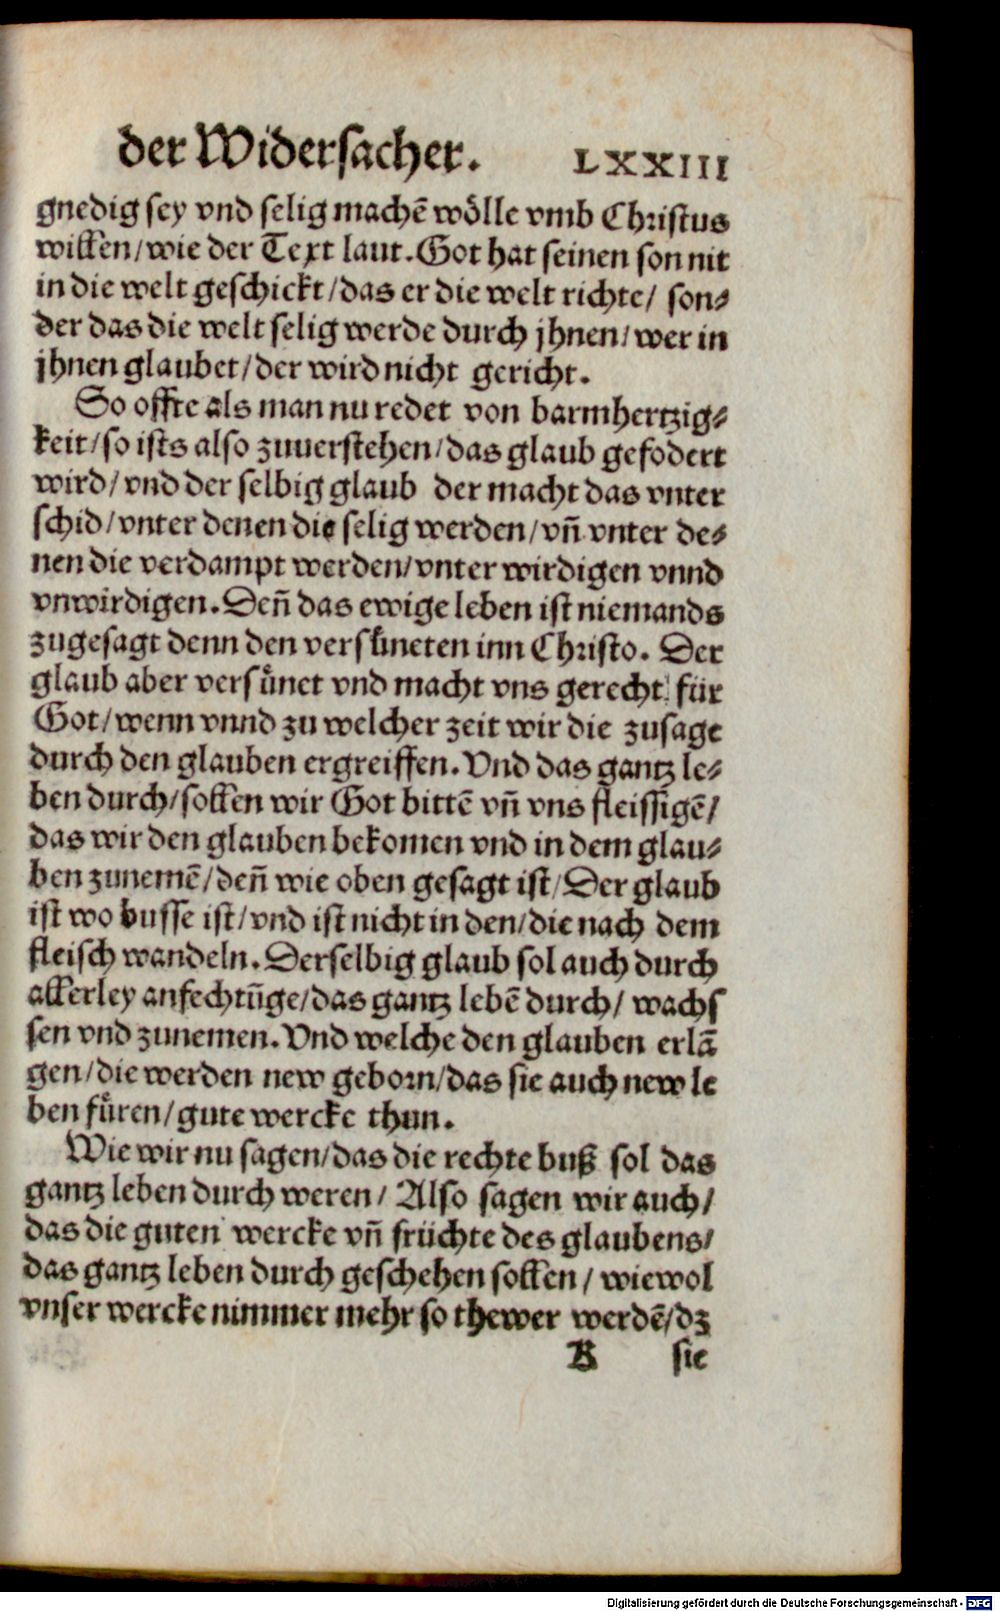 der Widersacher. LXXIII
gnedig sey vnd selig machē wölle vmb Christus
willen/wie der Text laut. Got hat seinen son nit
in die welt geschickt/das er die welt richte/ son⸗
der das die welt selig werde durch jhnen/wer in
jhnen glaubet/der wird nicht gericht.
So offte als man nu redet von barmhertzig⸗
keit/so ists also zuuerstehen/das glaub gefodert
wird/vnd der selbig glaub der macht das vnter
schid/vnter denen die selig werden/vñ vnter de⸗
nen die verdampt werden/vnter wirdigen vnnd
vnwirdigen. Deñ das ewige leben ist niemands
zugesagt denn den versüneten inn Christo. Der
glaub aber versuͤnet vnd macht vns gerecht für
Got/wenn vnnd zu welcher zeit wir die zusage
durch den glauben ergreiffen. Vnd das gantz le⸗
ben durch/sollen wir Got bittē vñ vns fleissigē/
das wir den glauben bekomen vnd in dem glau⸗
ben zunemē/deñ wie oben gesagt ist/Der glaub
ist wo busse ist/vnd ist nicht in den/die nach dem
fleisch wandeln. Derselbig glaub sol auch durch
allerley anfechtūge/das gantz lebē durch/ wachs
sen vnd zunemen. Vnd welche den glauben erlā
gen/die werden new geborn/das sie auch new le
ben fuͤren/gute wercke thun.
Wie wir nu sagen/das die rechte buß sol das
gantz leben durch weren/ Also sagen wir auch/
das die guten wercke vñ früchte des glaubens/
das gantz leben durch geschehen sollen/ wiewol
vnser wercke nimmer mehr so thewer werdē/dz
K sie
Digitalisierung gefördert durch die Deutsche Forschungsgemeinschaft - DFG